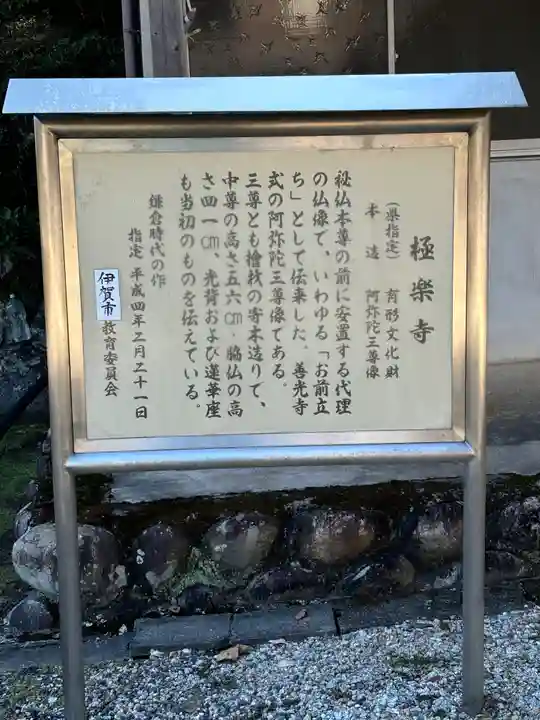 極楽寺
(県指定) 有形文化財
木造 阿弥陀三尊像
秘仏本尊の前に安置する代理
の仏像で、いわゆる「お前立
ち」として伝来した。善光寺
式の阿弥陀三尊像である。
三尊とも檜材の寄木造りで、
中尊の高さ五六cm、脇仏の高
さ四一cm、光背および蓮華座
も当初のものを伝えている。
鎌倉時代の作
指定 平成四年二月二十一日
伊賀市教育委員会